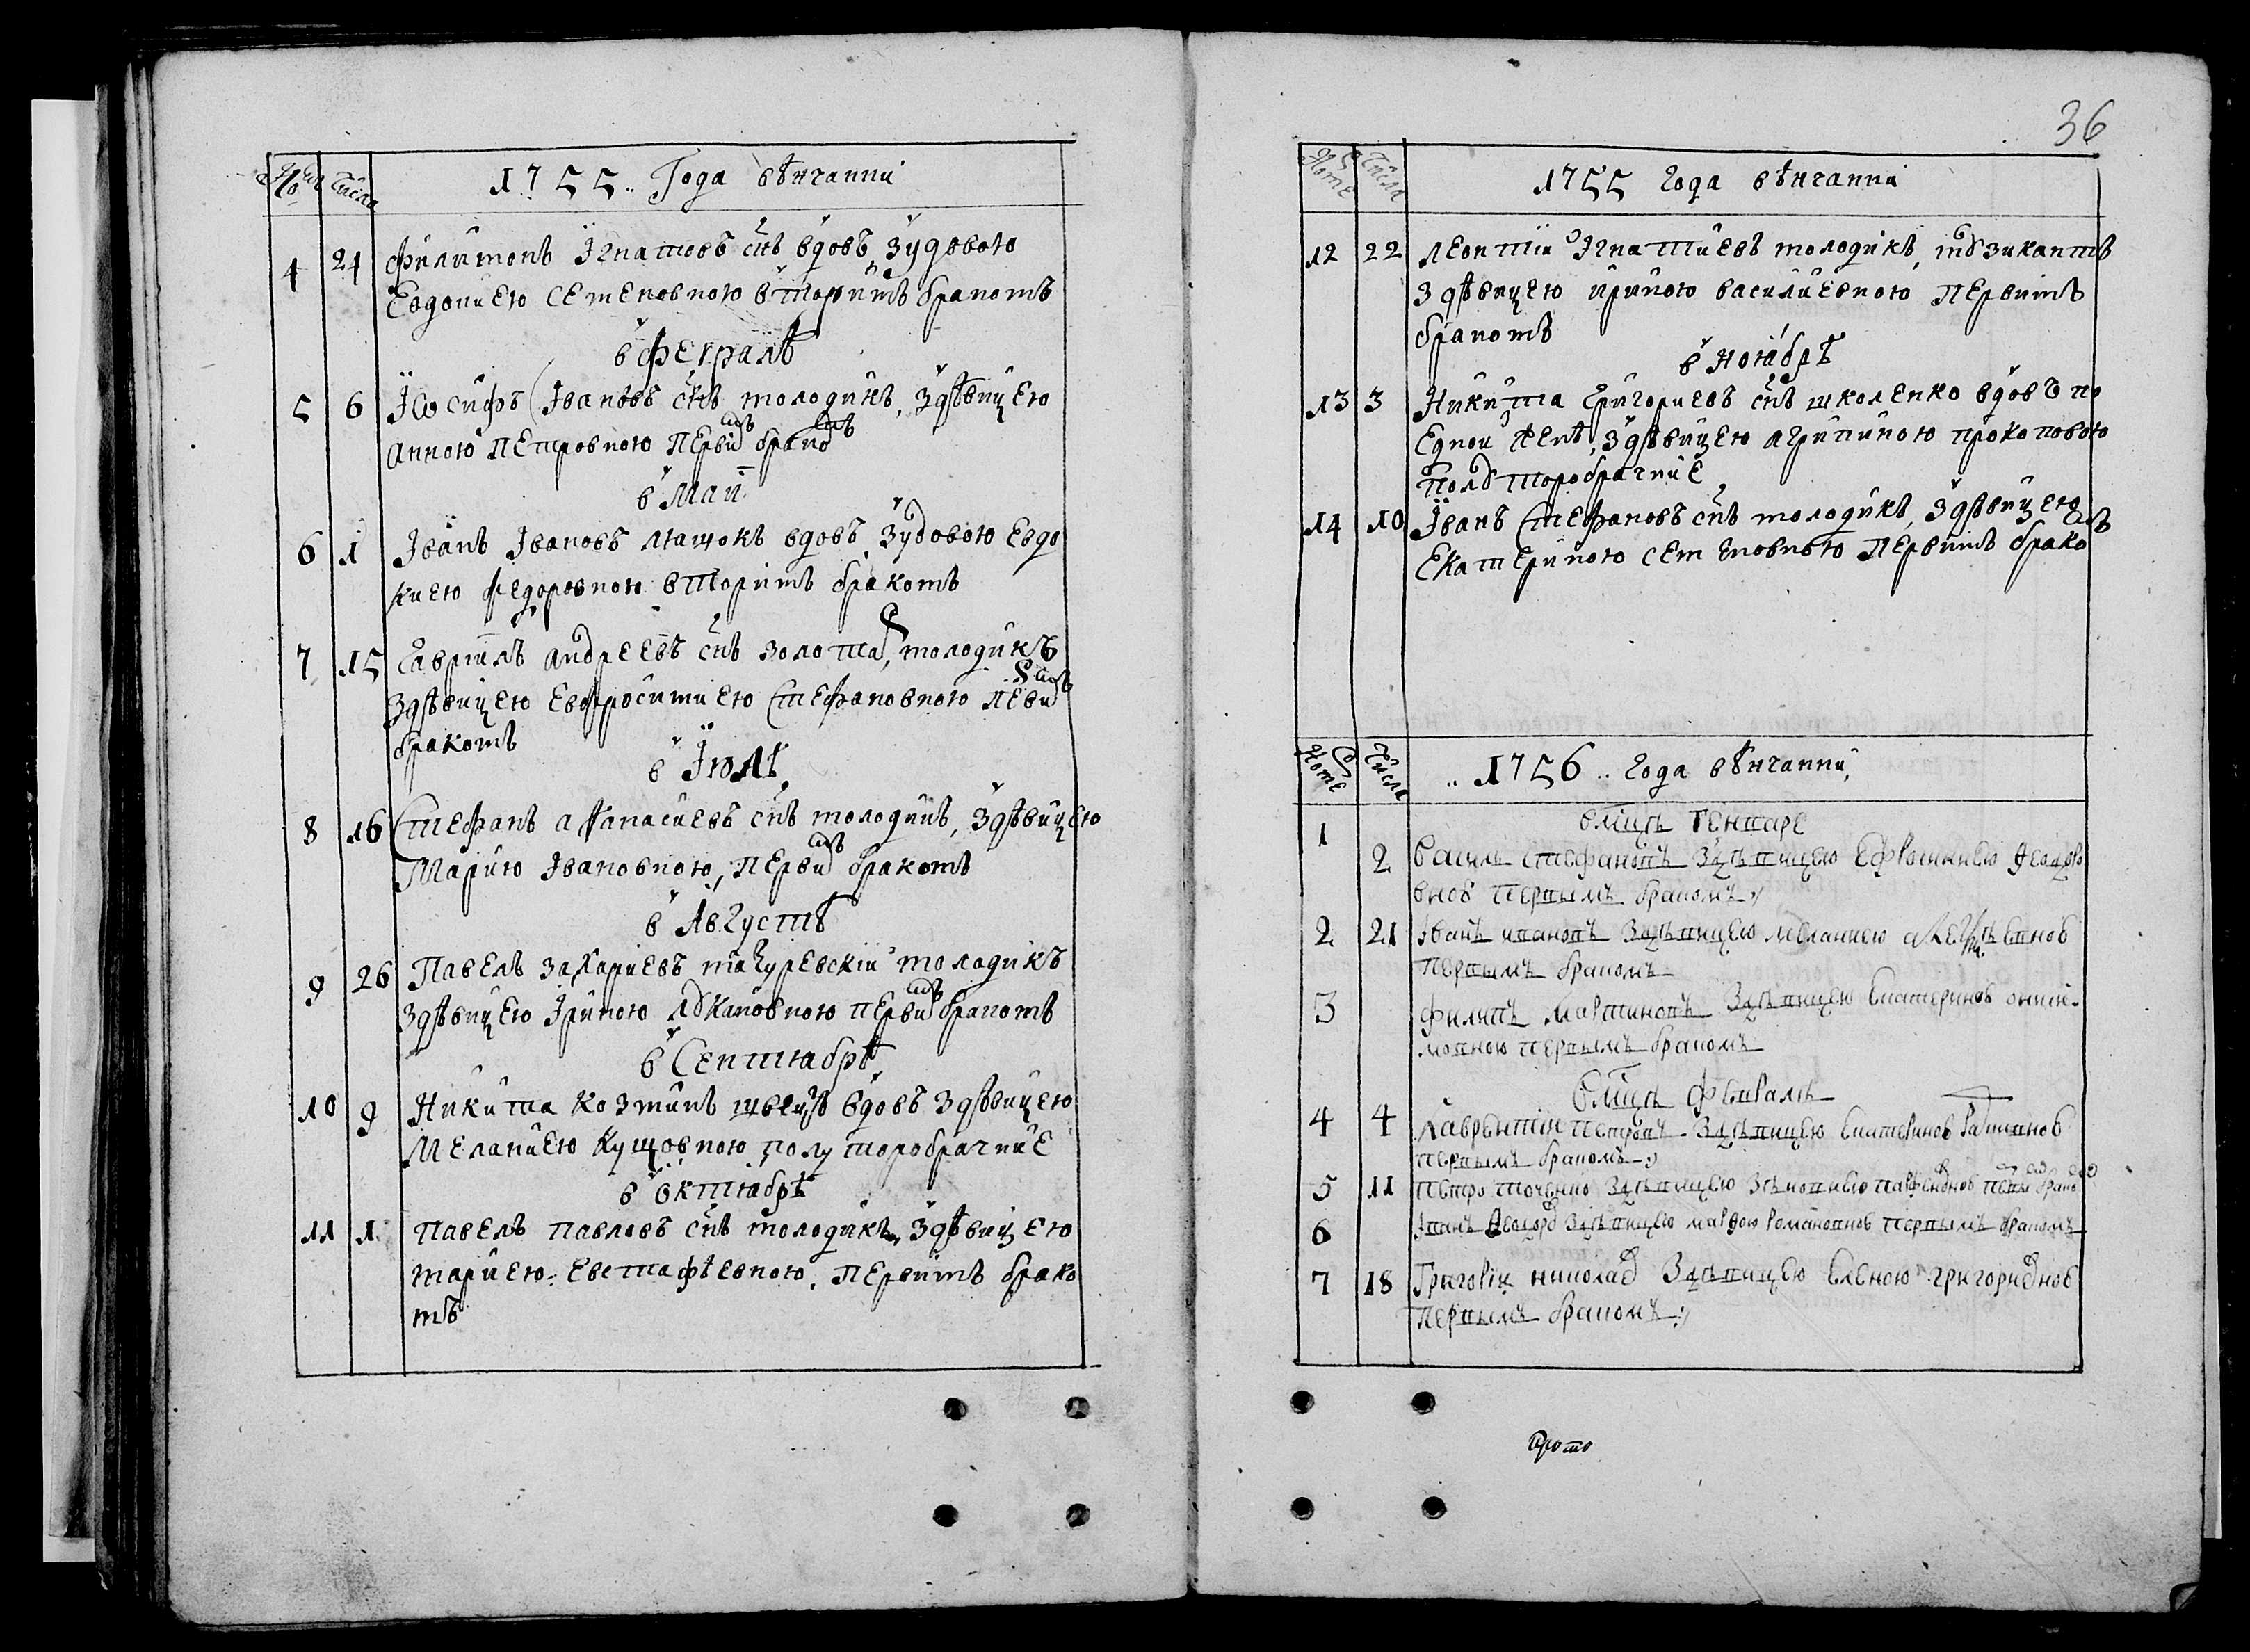 Номе Числа 1755 Года вѣнчанни
4 24 Филимонъ Ігнатовъ снъ вдовъ, зудовою
Евдокиею Семеновною вторимъ бракомъ
в Февралѣ
5 6 Іѡсифъ Івановъ снъ молодикъ, здѣвицею
Анною Петровною Первимъ бракомъ
в Маи
6 1 Іванъ Івановъ Лящокъ вдовъ, зудовою Евдо
киею Федоровною вторимъ бракомъ
7 15 Гавриилъ Андреевъ снъ Золота, молодикъ
здѣвицею Евфросиниею Стефановною Первимъ
бракомъ
в Іюлѣ
8 16 Стефанъ Аѳанасиевъ снъ молодикъ, здѣвицею
Мариею Івановною, Первимъ бракомъ
в Августѣ
9 26 Павелъ Захариевъ молодикъ
здѣвицею Іриною Лꙋкановною первимъ бракомъ
в Септюабрѣ
10 9 Никита Козминъ швецъ вдовъ здѣвицею
Меланиею Кущовною полуторобрачние
в Октюабрѣ
11 1 Павелъ Павловъ снъ молодикъ, здѣвицею
мариею Евстафѣевною, Первимъ брако
мъ
36
Номе Числа 1755 Года вѣнчанна
12 22 Леонтии Ігнатиевъ молодикъ, мꙋзикантъ
здѣвицею ириною василиевною Первимъ
бракомъ
в Ноябрѣ
13 3 Никита Григориевъ снъ школенко вдовъ по
Едной женѣ, здѣвицею агрипиною прокоповою
полꙋторобрачние
14 10 Іванъ Стефановъ снъ молодикъ, здѣвицею
Екатериною семеновною Первимъ бракомъ
Номе Числа 1756 Года вѣнчанни
вмцѣ Генваре
1 2 Василь стефановъ здѣвицею Ефросиниею Ѳеодоро
вноꙋ Первымъ бракомъ
2 21 Іванъ ивановъ здѣвицею меланиею
Первымъ бракомъ
3 Филипъ Мартиновъ здѣвицею Екатериноꙋ
мовною первымъ бракомъ
вмцѣ Февралѣ
4 4 Лаврентіи Петровъ здѣвицею Екатериноꙋ
первымъ бракомъ
5 11 Петро Точенко здѣвицею Зѣновиею Парфеновноꙋ Первы брако
6 Іванъ Ѳеодоров здѣвицею марѳою Романовноꙋ первымъ бракомъ
7 18 Григоріи николаев здѣвицею Еленою григориевноꙋ
Первымъ бракомъ
Прото